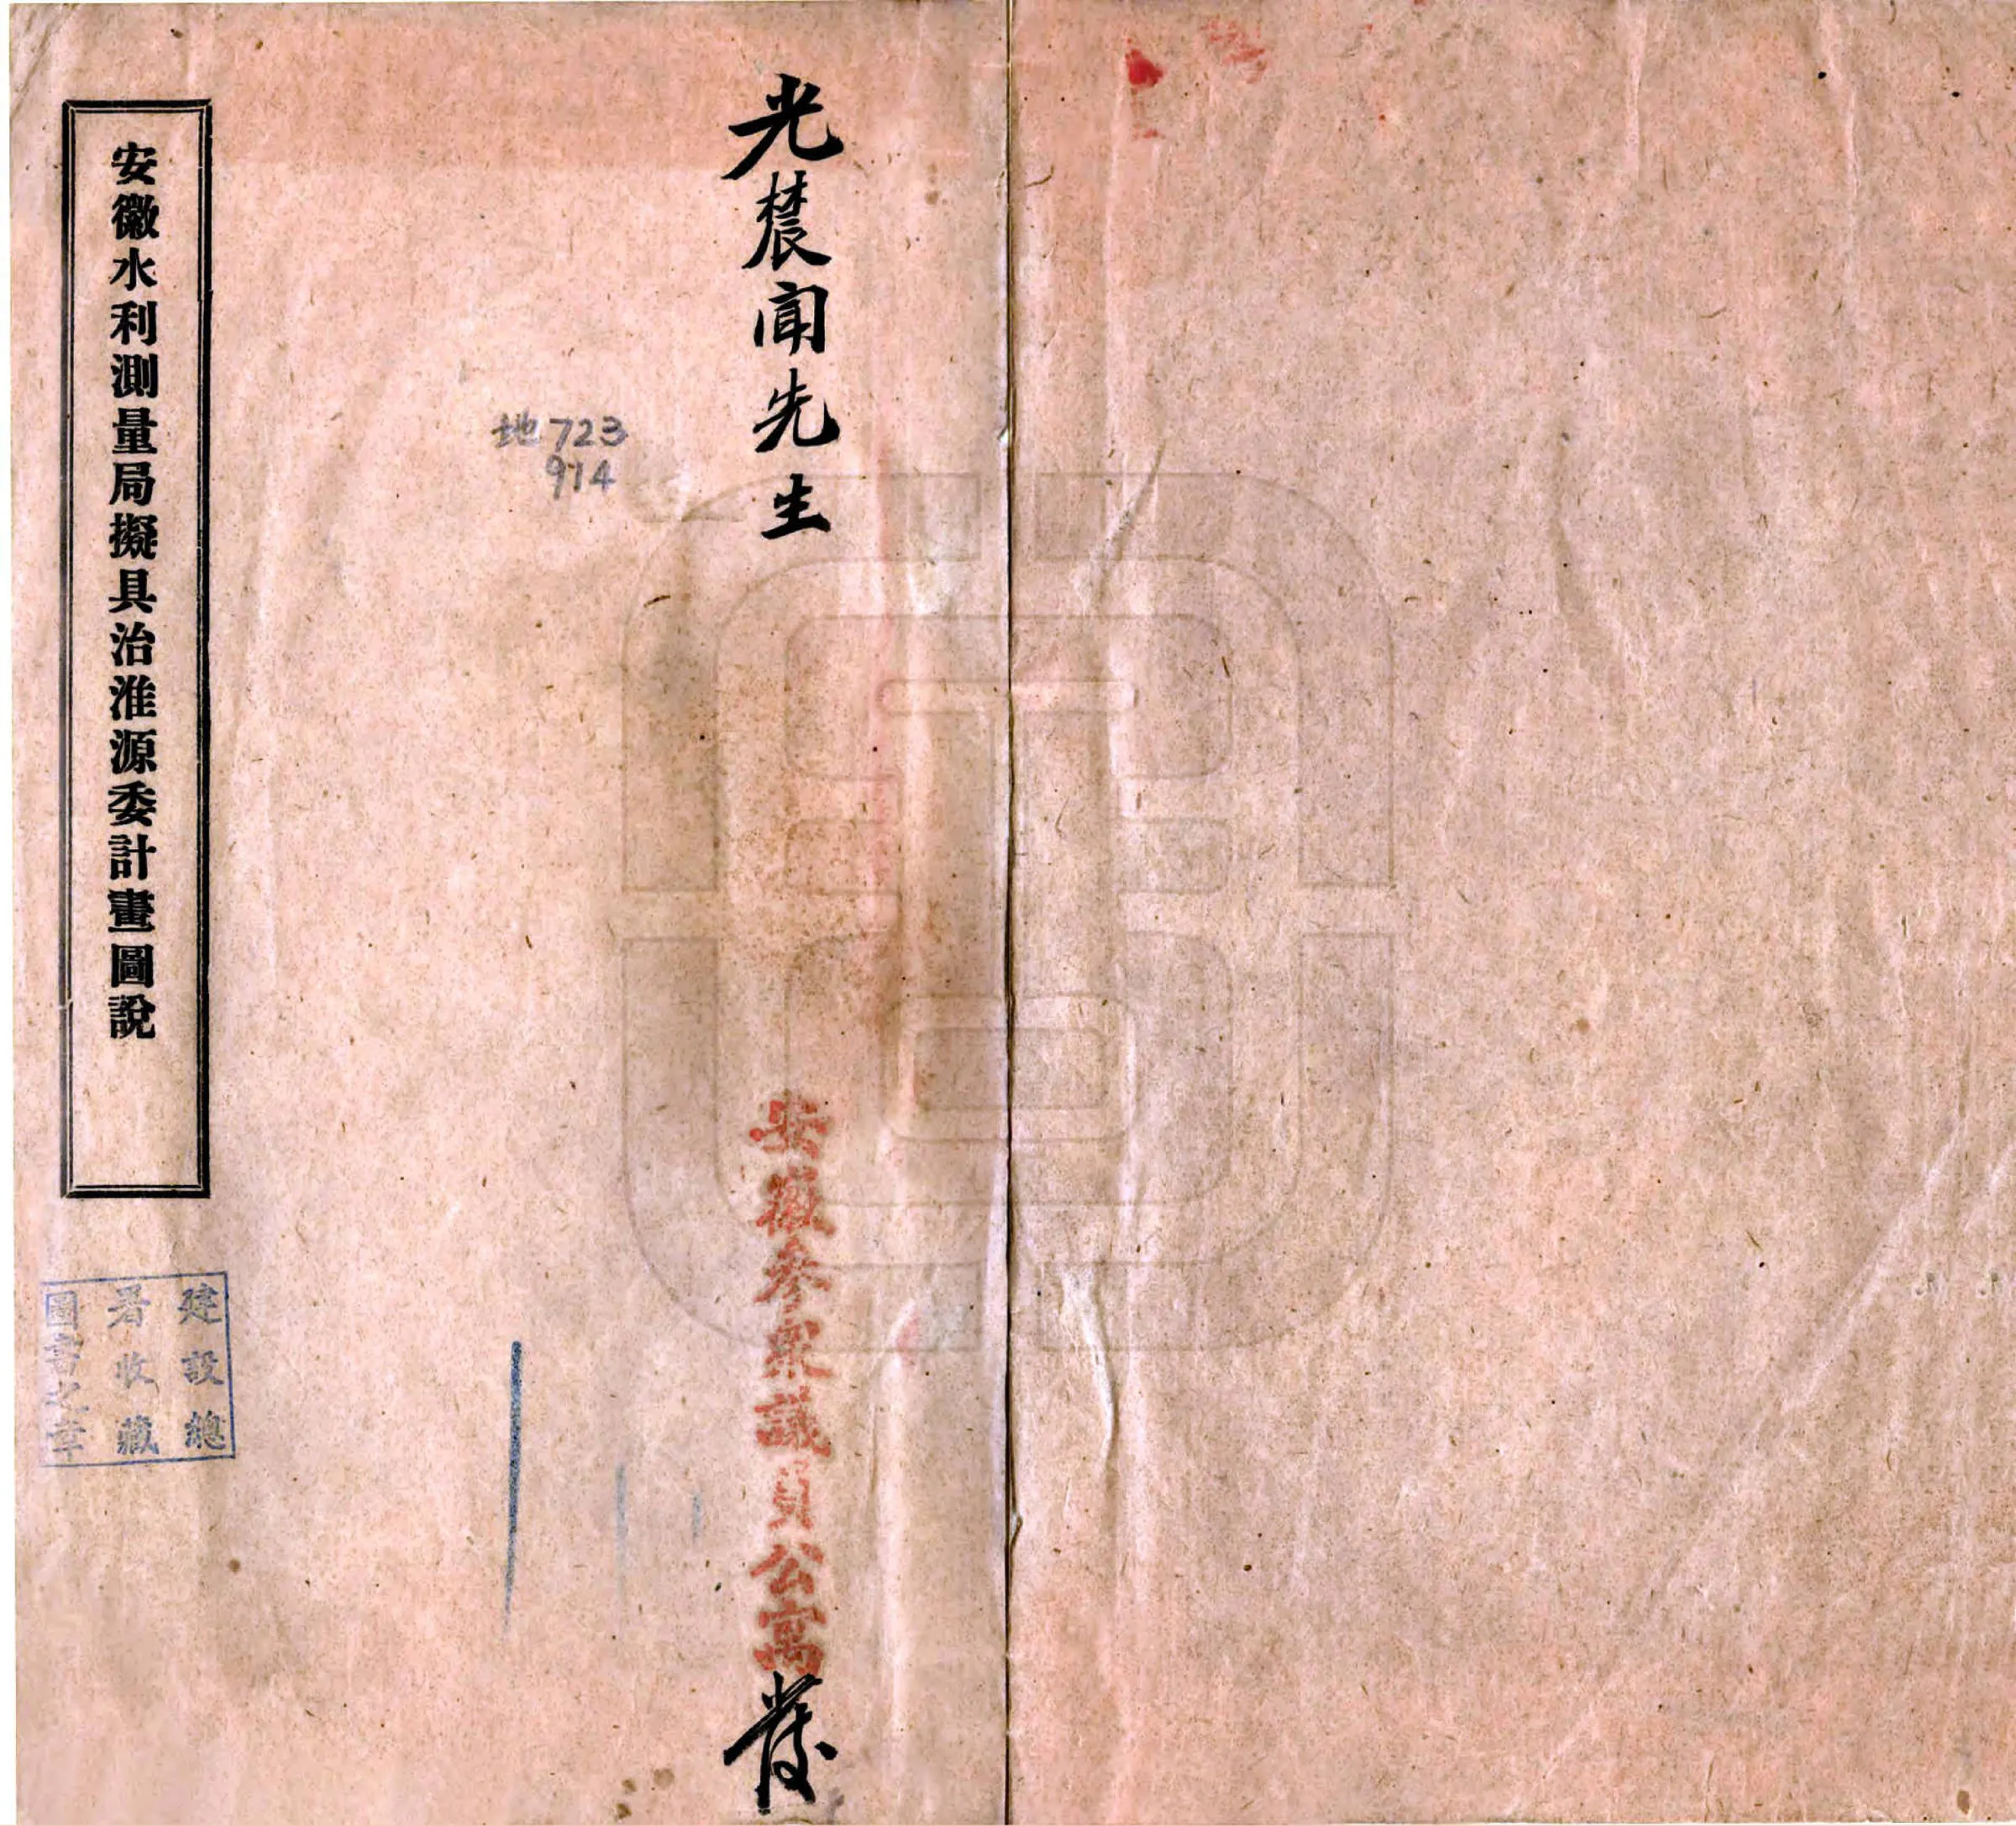 光農聞先生
安徽參眾議員公寓
發
地723
914
安徽水利測量局擬具治淮源委計畫圖說
建設總
署收藏
圖書之章